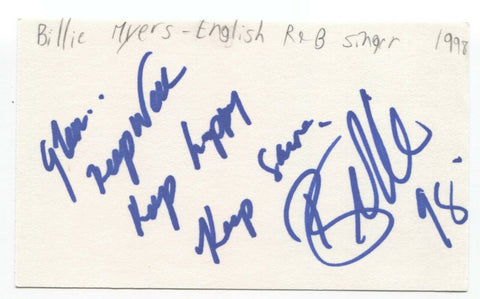 Billie Myers - English R&B singer 1998
Glen..
Keep Well
Keep Happy
Keep Sane.
Billie
98.